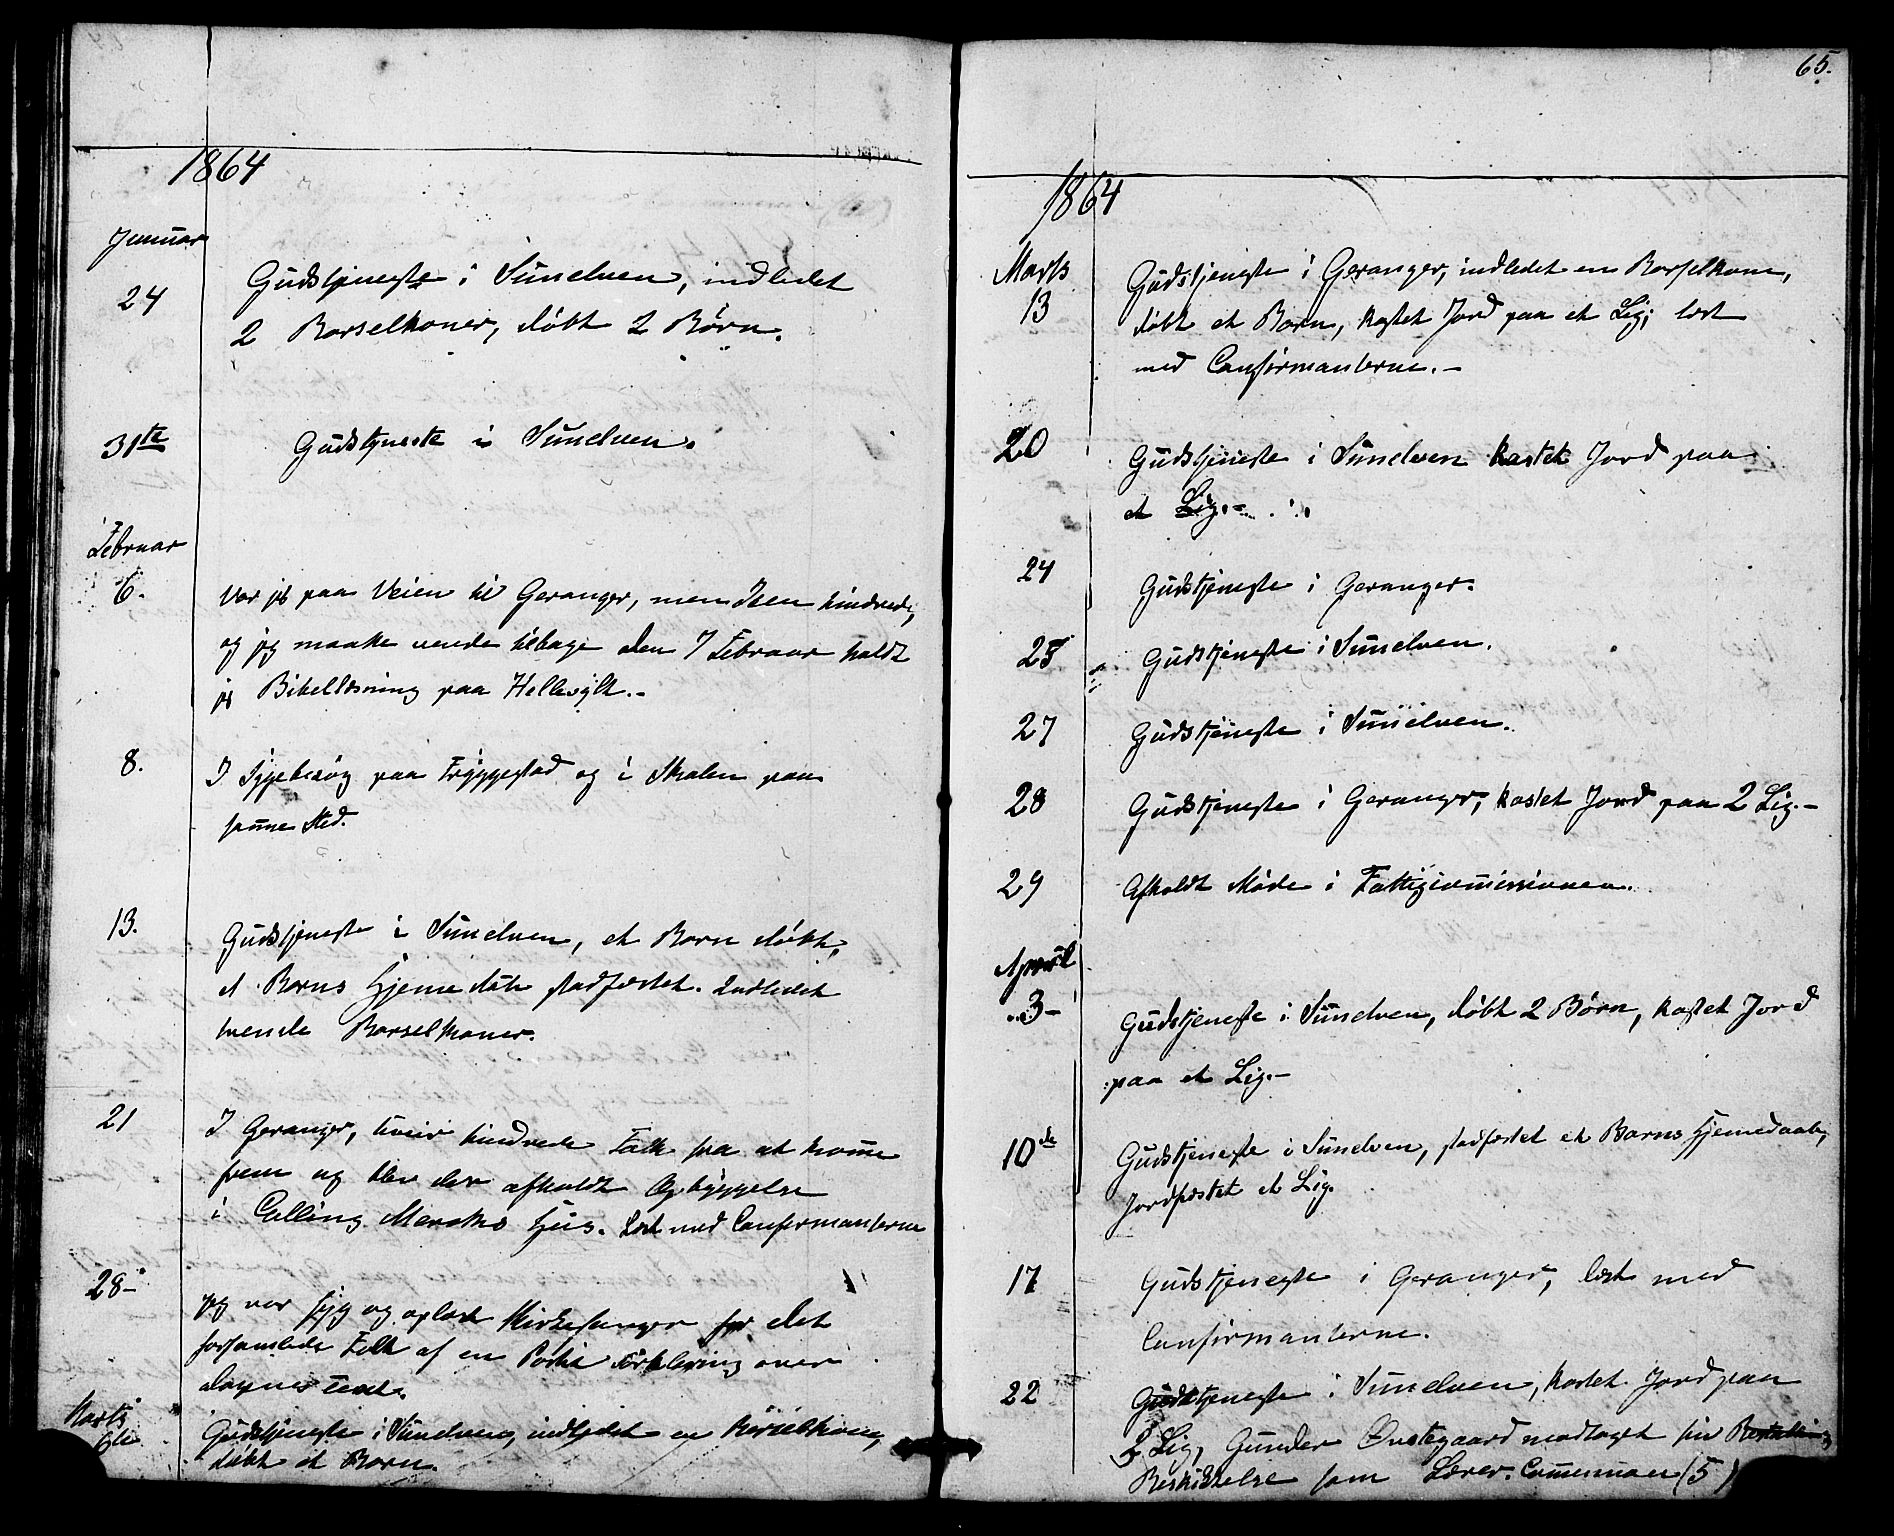 1864
Januar
24
Gudstjeneste i Sunelven, indledet
2 Barselkoner, døbt 2 Børn.
31te
Gudstjeneste i Sunelven.
Februar
6.
var jeg paa Veien til Geranger, men Isen hindrede,
og jeg maatte vende tilbage den 7 Februar holdt
jeg Bibellæsning paa Hellesylt.-
8.
I Sygebesøg paa Tryggestad og i Skolen paa
samme Sted.
13.
Gudstjeneste i Sunelven, et Barn døbt,
et Barns Hjemmedåb stadfæstet. Indledet
tvende Barselkoner.
21
I Geranger, Uveir hindrede Folk fra at komme
frem og blev der afholdt Opbyggelse
i Merakes Huus. Læst med Confirmanterne
28-
jeg var syg og oplæste Kirkesanger for det
forsamlede Folk af en Postil Forklaring over
Dagens Text.
Marts
6te
Gudstjeneste i Sunelven, indledet en Barselkone,
døbt et Barn.
65.
1864
Marts
13
Gudstjeneste i Geranger, indledet en Barselkone,
døbt et Barn, kastet Jord paa et Lig; læst
med Confirmanterne.-
20
Gudstjeneste i Sunelven kastet Jord paa
et Lig.-
24
Gudstjeneste i Geranger.
25
Gudstjeneste i Sunelven.
27
Gudstjeneste i Sunelven.
28
Gudstjeneste i Geranger, kastet Jord paa 2 Lig.-
29
Afholdt Møde i Fattigcomissionen.
April
3-
Gudstjeneste i Sunelven, døbt 2 Børn, kastet Jord
paa et Lig.-
10de
Gudstjeneste i Sunelven, stadfæstet et Barns Hjemedaab,
Jordfæstet et Lig.
17
Gudstjeneste i Geranger, læst med
Confirmanterne.
22
Gudstjeneste i Sunelven, kastet Jord paa
2 Lig, Gunder Ourstegaard modtaget sin Bestalling
Beskikkelse som Lærer. (5)